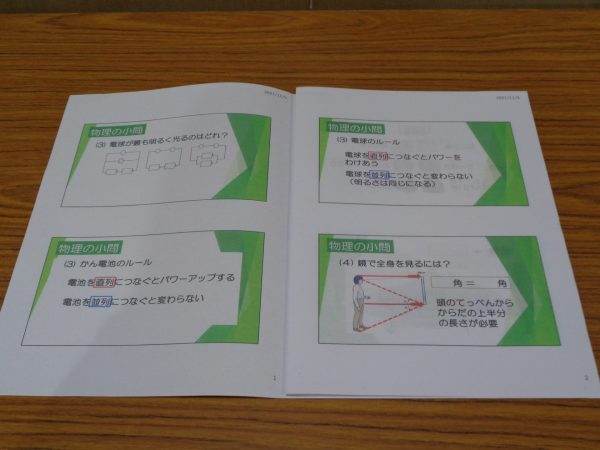 2021/11/5
物理の小問
(3) 電球が最も明るく光るのはどれ？
物理の小問
(3) かん電池のルール
電池を直列につなぐとパワーアップする
電池を並列につなぐと変わらない
1
2021/11/5
物理の小問
(3) 電球のルール
電球を直列につなぐとパワーを
わけあう
電球を並列につなぐと変わらない
(明るさは同じになる)
物理の小問
(4) 鏡で全身を見るには？
角＝　角
頭のてっぺんから
からだの上半分
の長さが必要
2